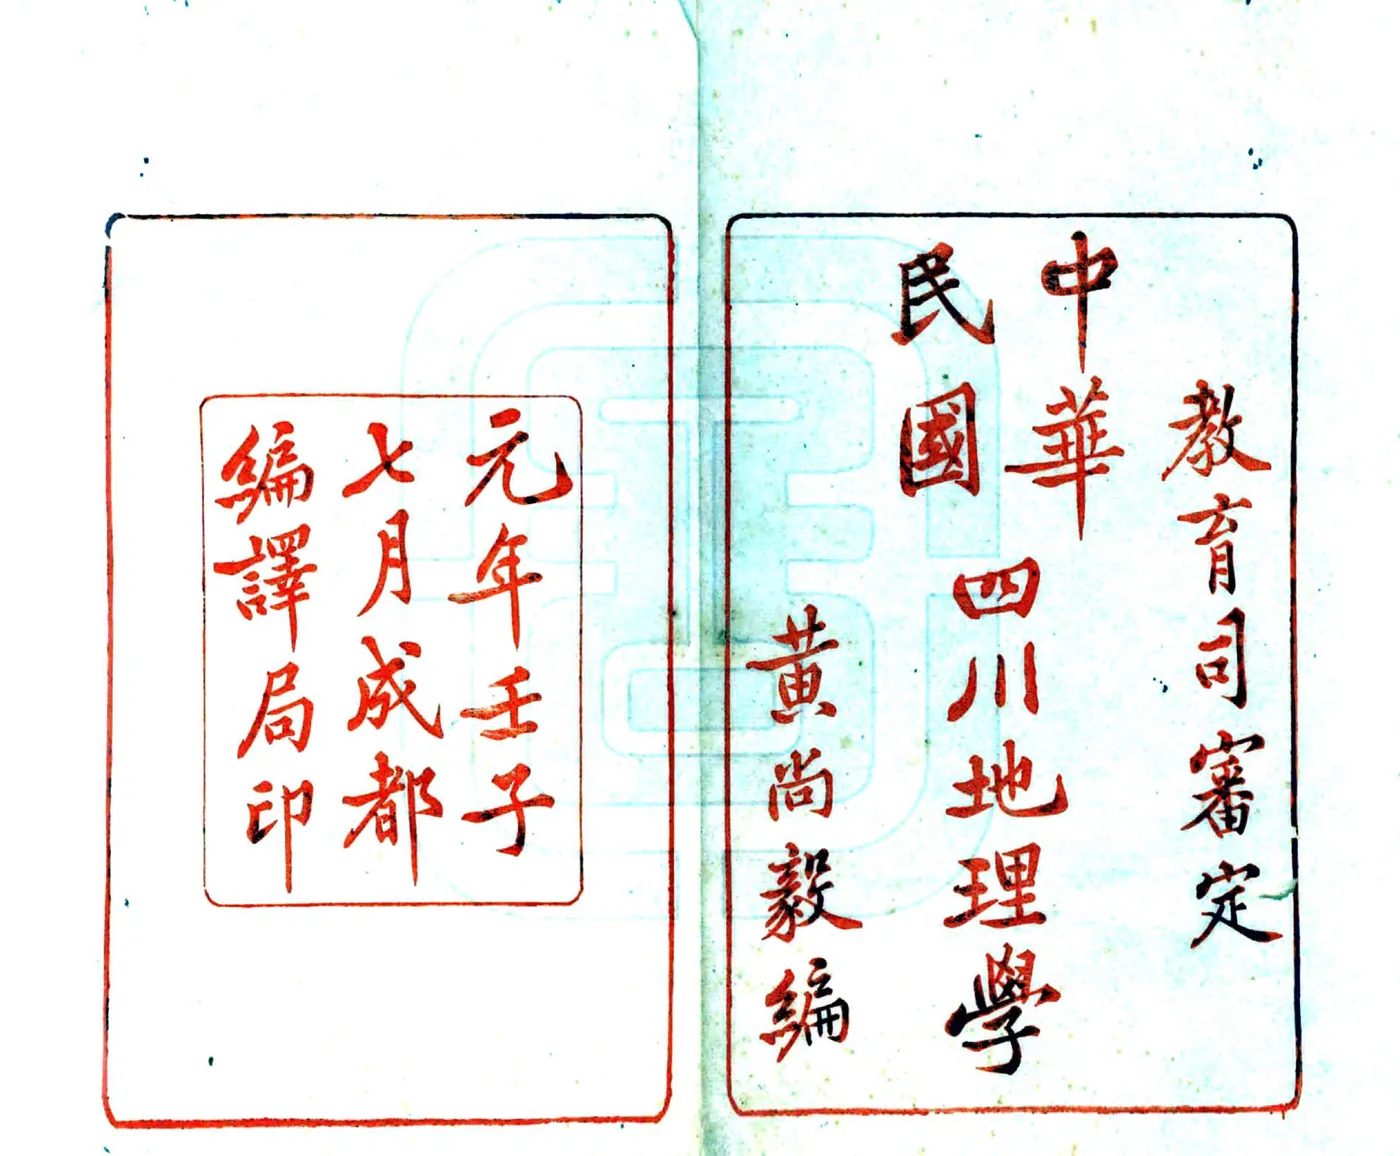 教育司審定
中華
民國
四川地理學
黃尚毅編
元年壬子
七月成都
編譯局印